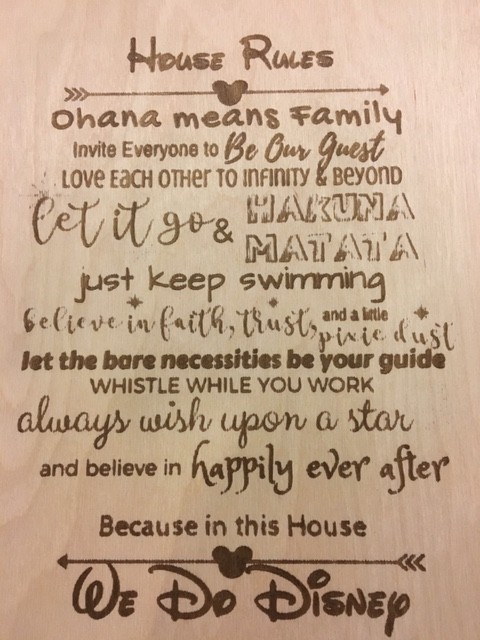 House Rules
Ohana means Family
Invite Everyone to Be Our Guest
Love Each Other to Infinity & Beyond
let it go & HAKUNA MATATA
just keep swimming
believe in faith, trust, and a little pixie dust
let the bare necessities be your guide
WHISTLE WHILE YOU WORK
always wish upon a star
and believe in happily ever after
Because in this House
We Do Disney